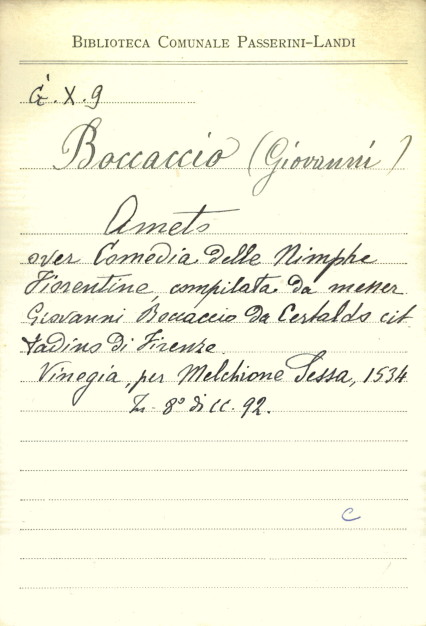 BIBLIOTECA COMUNALE PASSERINI-LANDI
G. X. 9
Boccaccio (Giovanni)
Ameto
over Comedia delle Nimphe
Fiorentine, compilata da messer
Giovanni Boccaccio da Certaldo cit
tadino di Firenze.
Vinegia, per Melchione Sessa, 1534
In 8° di cc. 92.
C